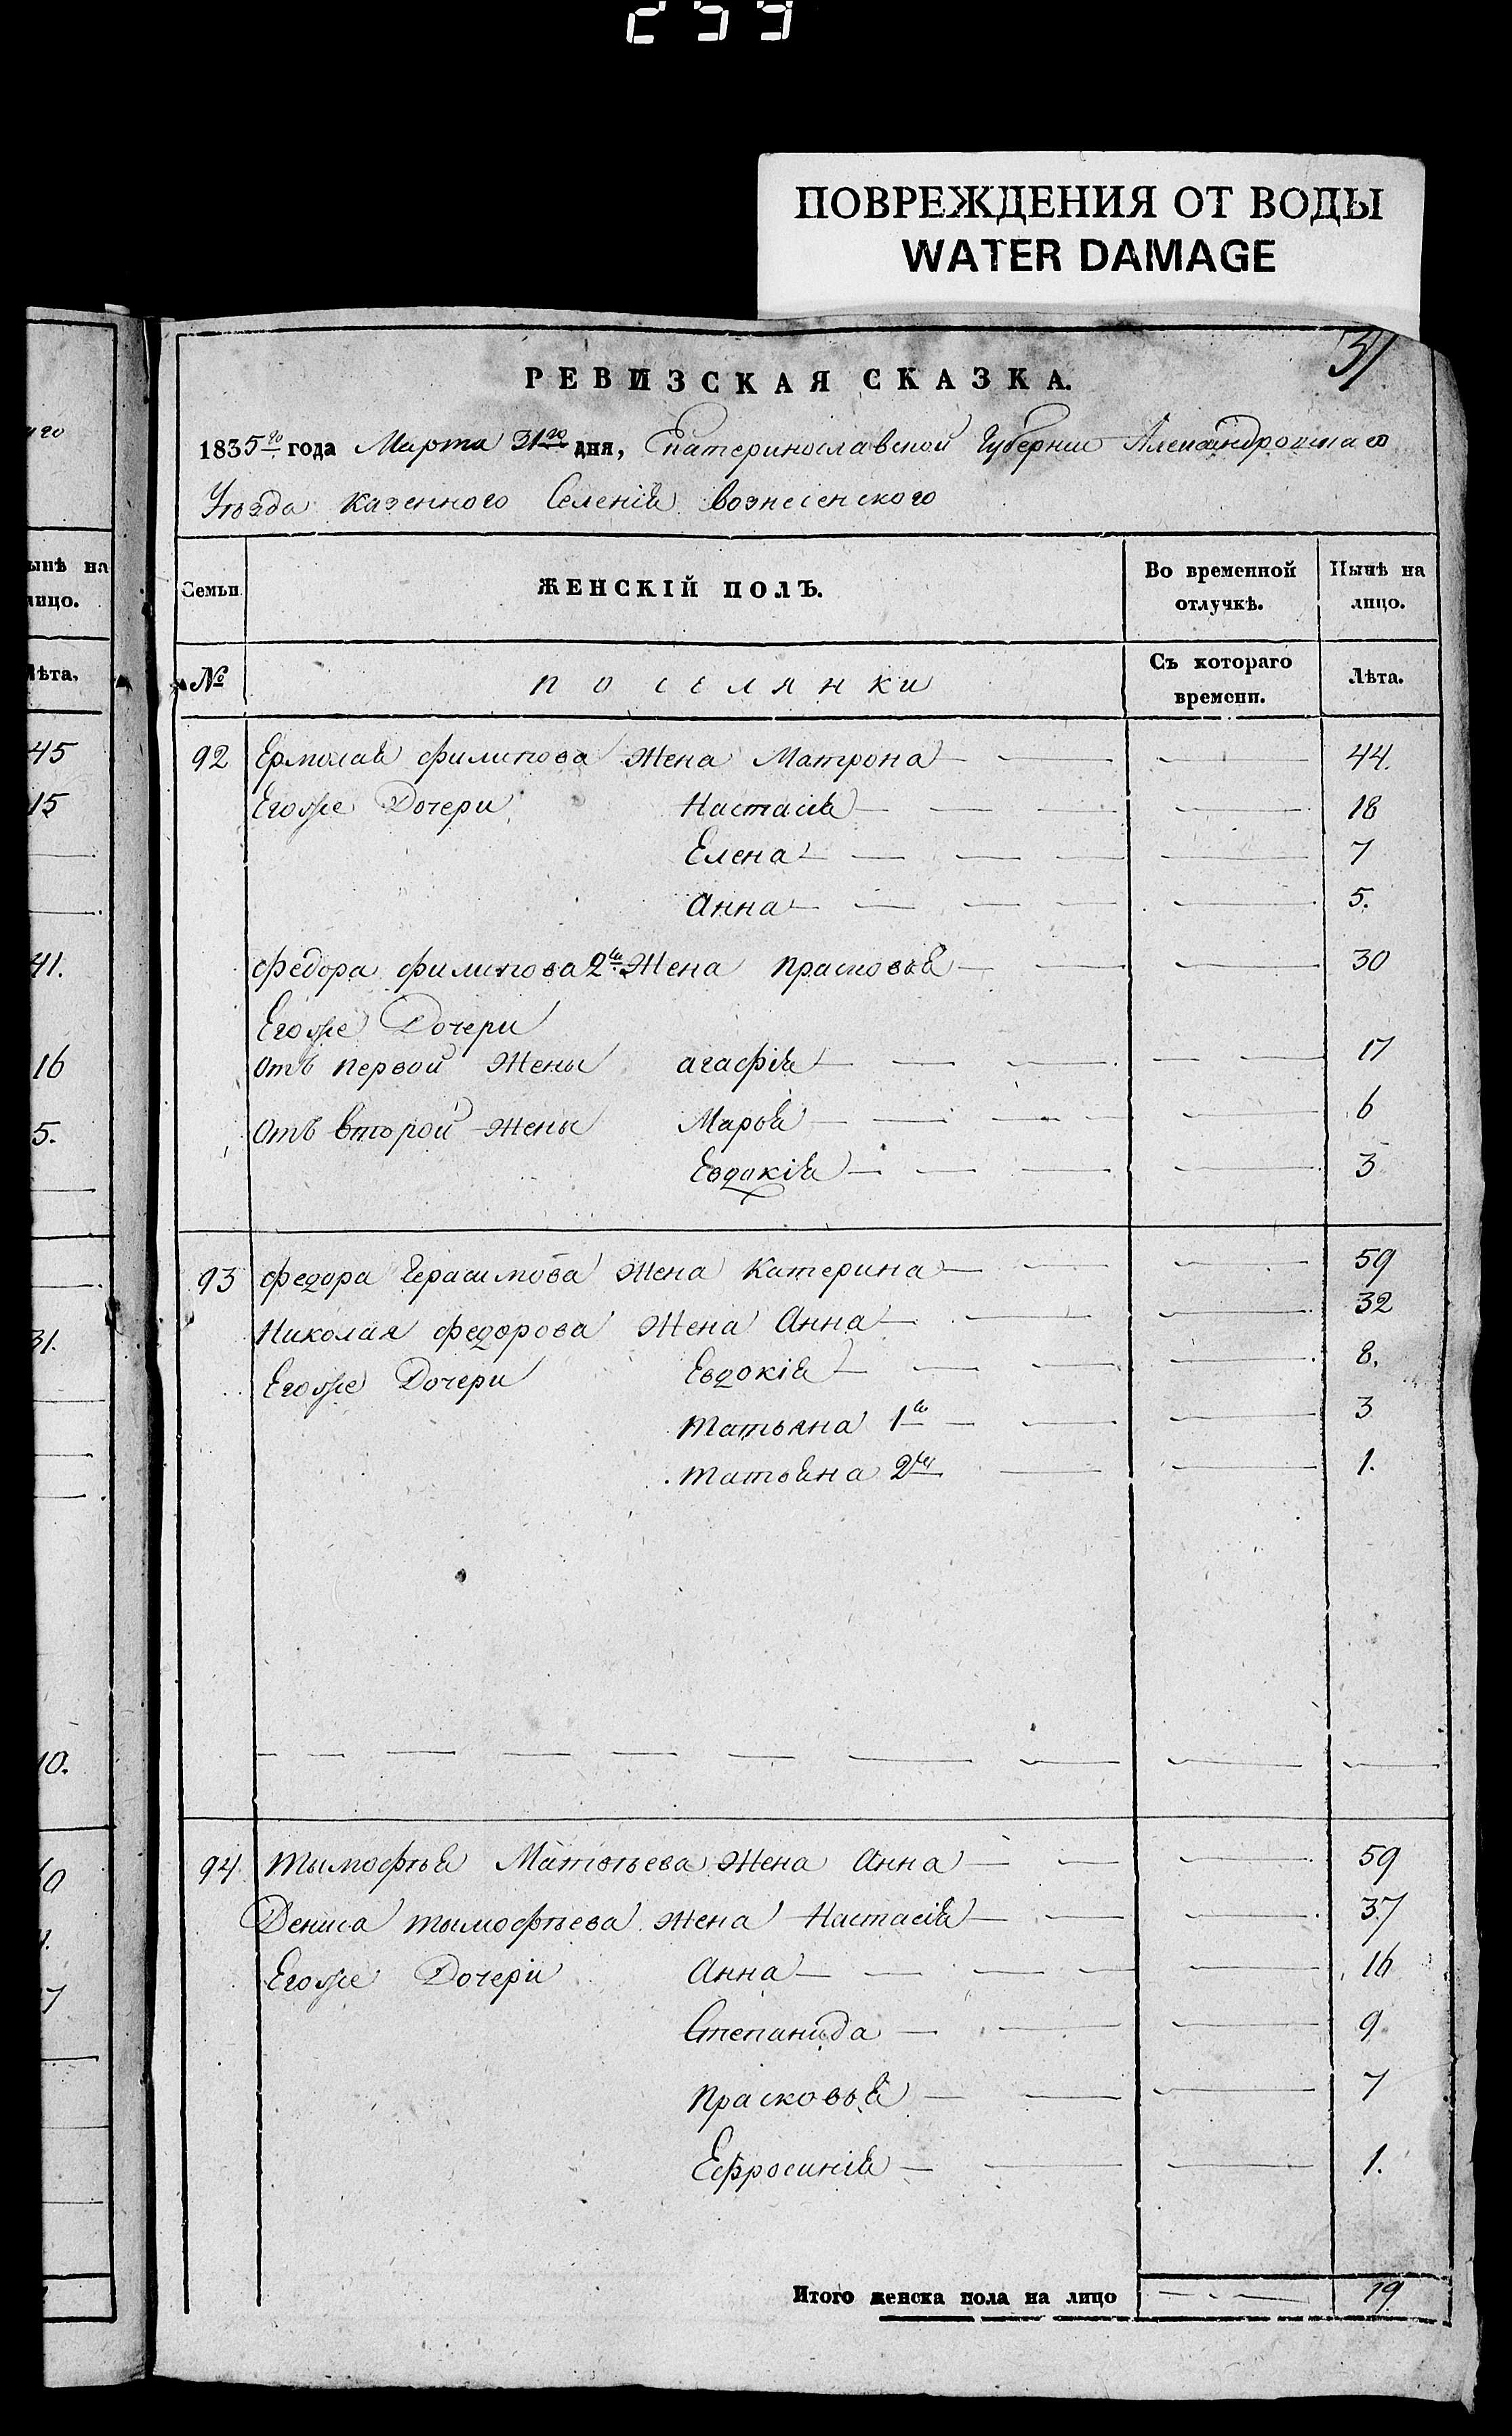 259
ПОВРЕЖДЕНИЯ ОТ ВОДЫ
WATER DAMAGE
31
РЕВИЗСКАЯ СКАЗКА.
1835го года Марта 31го дня, Екатеринославской Губернии Александровскаго
Уѣзда казенного Селенія вознесенского
Семьи
ЖЕНСКІЙ ПОЛЪ.
Во временной отлучкѣ.
Нынѣ на лицо.
№
поселянки
Съ котораго времени.
Лѣта.
92 Ермолая филипова Жена Матрона 44.
Егоже Дочери Настасія 18
Елена 7
Анна 5.
федора филипова 2я Жена прасковья 30
Егоже Дочери
Отъ первой Жены агафія 17
Отъ второй Жены Марья 6
Евдокія 3
93 федора Герасимова Жена Катерина 59
Николая федорова Жена Анна 32
Егоже Дочери Евдокія 8.
Татьяна 1я 3
Татьяна 2я 1.
94 тымофѣя Матвѣева Жена Анна 59
Дениса тымофѣева жена Настасія 37
Егоже Дочери Анна 16
Степанида 9
прасковья 7
Ефросинія 1.
Итого женска пола на лицо 19
ынѣ на
лицо.
Лѣта.
45
15
41.
16
5.
31.
10.